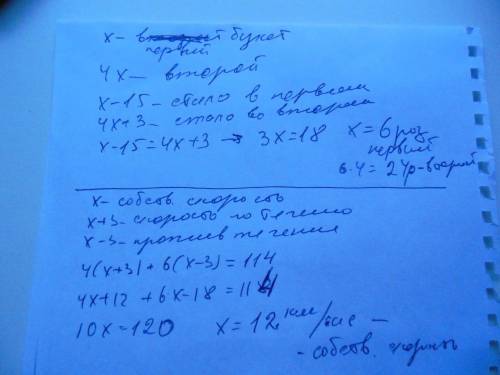 x – букет
первий
4x – второй
x-15 – стало в первом
4x+3 – стало во втором
x-15=4x+3 → 3x=18 x=6 роз
первий
6·4=24р-второй
x – собств. скорость
x+3 – скорость по течению
x-3 – против течения
4(x+3)+6(x-3)=114
4x+12+6x-18=114
10x=120 x=12 км/час –
- собств. скорость